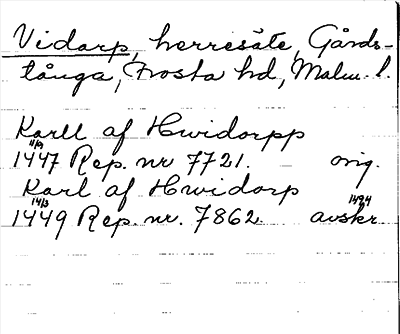 Vidarp, herresäte, Gårds-
tånga, Frosta hd, Malm. l.
Karll af Hwidorpp
1447 4/9 Rep. nr 7721. orig.
Karl af Hwidorp
1449 14/3 Rep. nr. 7862. avskr 1494